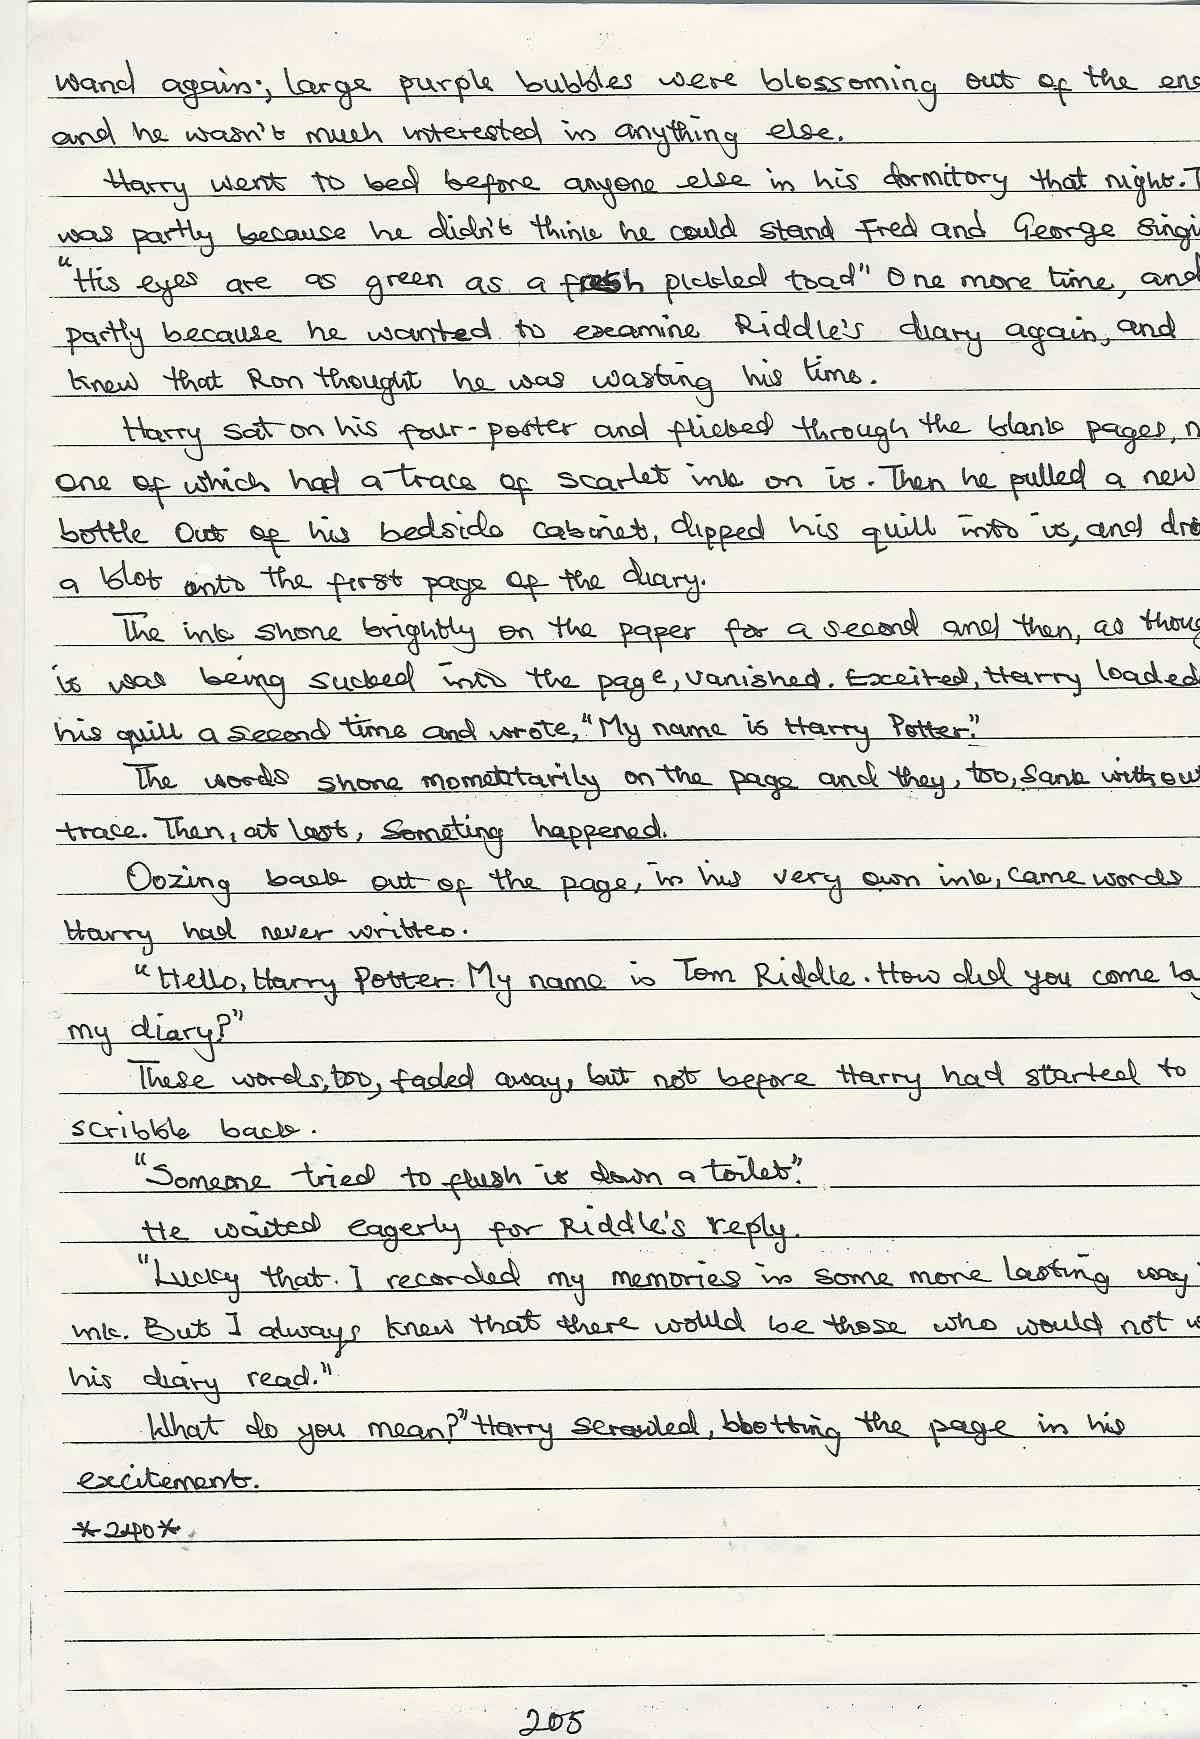 wand again; large purple bubbles were blossoming out of the en
and he wasn't much interested in anything else.
Harry went to bed before anyone else in his dormitory that night. T
was partly because he didn't think he could stand Fred and George singi
"His eyes are as green as a fresh pickled toad" One more time, and
partly because he wanted to examine Riddle's diary again, and
knew that Ron thought he was wasting his time.
Harry sat on his four-poster and flicked through the blank pages, n
one of which had a trace of scarlet ink on it. Then he pulled a new
bottle Out of his bedside cabinet, dipped his quill into it, and dro
a blot onto the first page of the diary.
The ink shone brightly on the paper for a second and then, as thoug
it was being sucked into the page, vanished. Excited, Harry loaded
his quill a second time and wrote, "My name is Harry Potter."
The words shone momentarily on the page and they, too, sank withou
trace. Then, at last, Someting happened.
Oozing back out of the page, in his very own ink, came words
Harry had never written.
"Hello, Harry Potter. My name is Tom Riddle. How did you come by
my diary?"
These words, too, faded away, but not before Harry had started to
scribble back.
"Someone tried to flush it down a toilet."
He waited eagerly for Riddle's reply.
"Lucky that I recorded my memories in some more lasting way
ink. But I always knew that there would be those who would not w
his diary read."
What do you mean?" Harry scrawled, blotting the page in his
excitement.
*240*
205